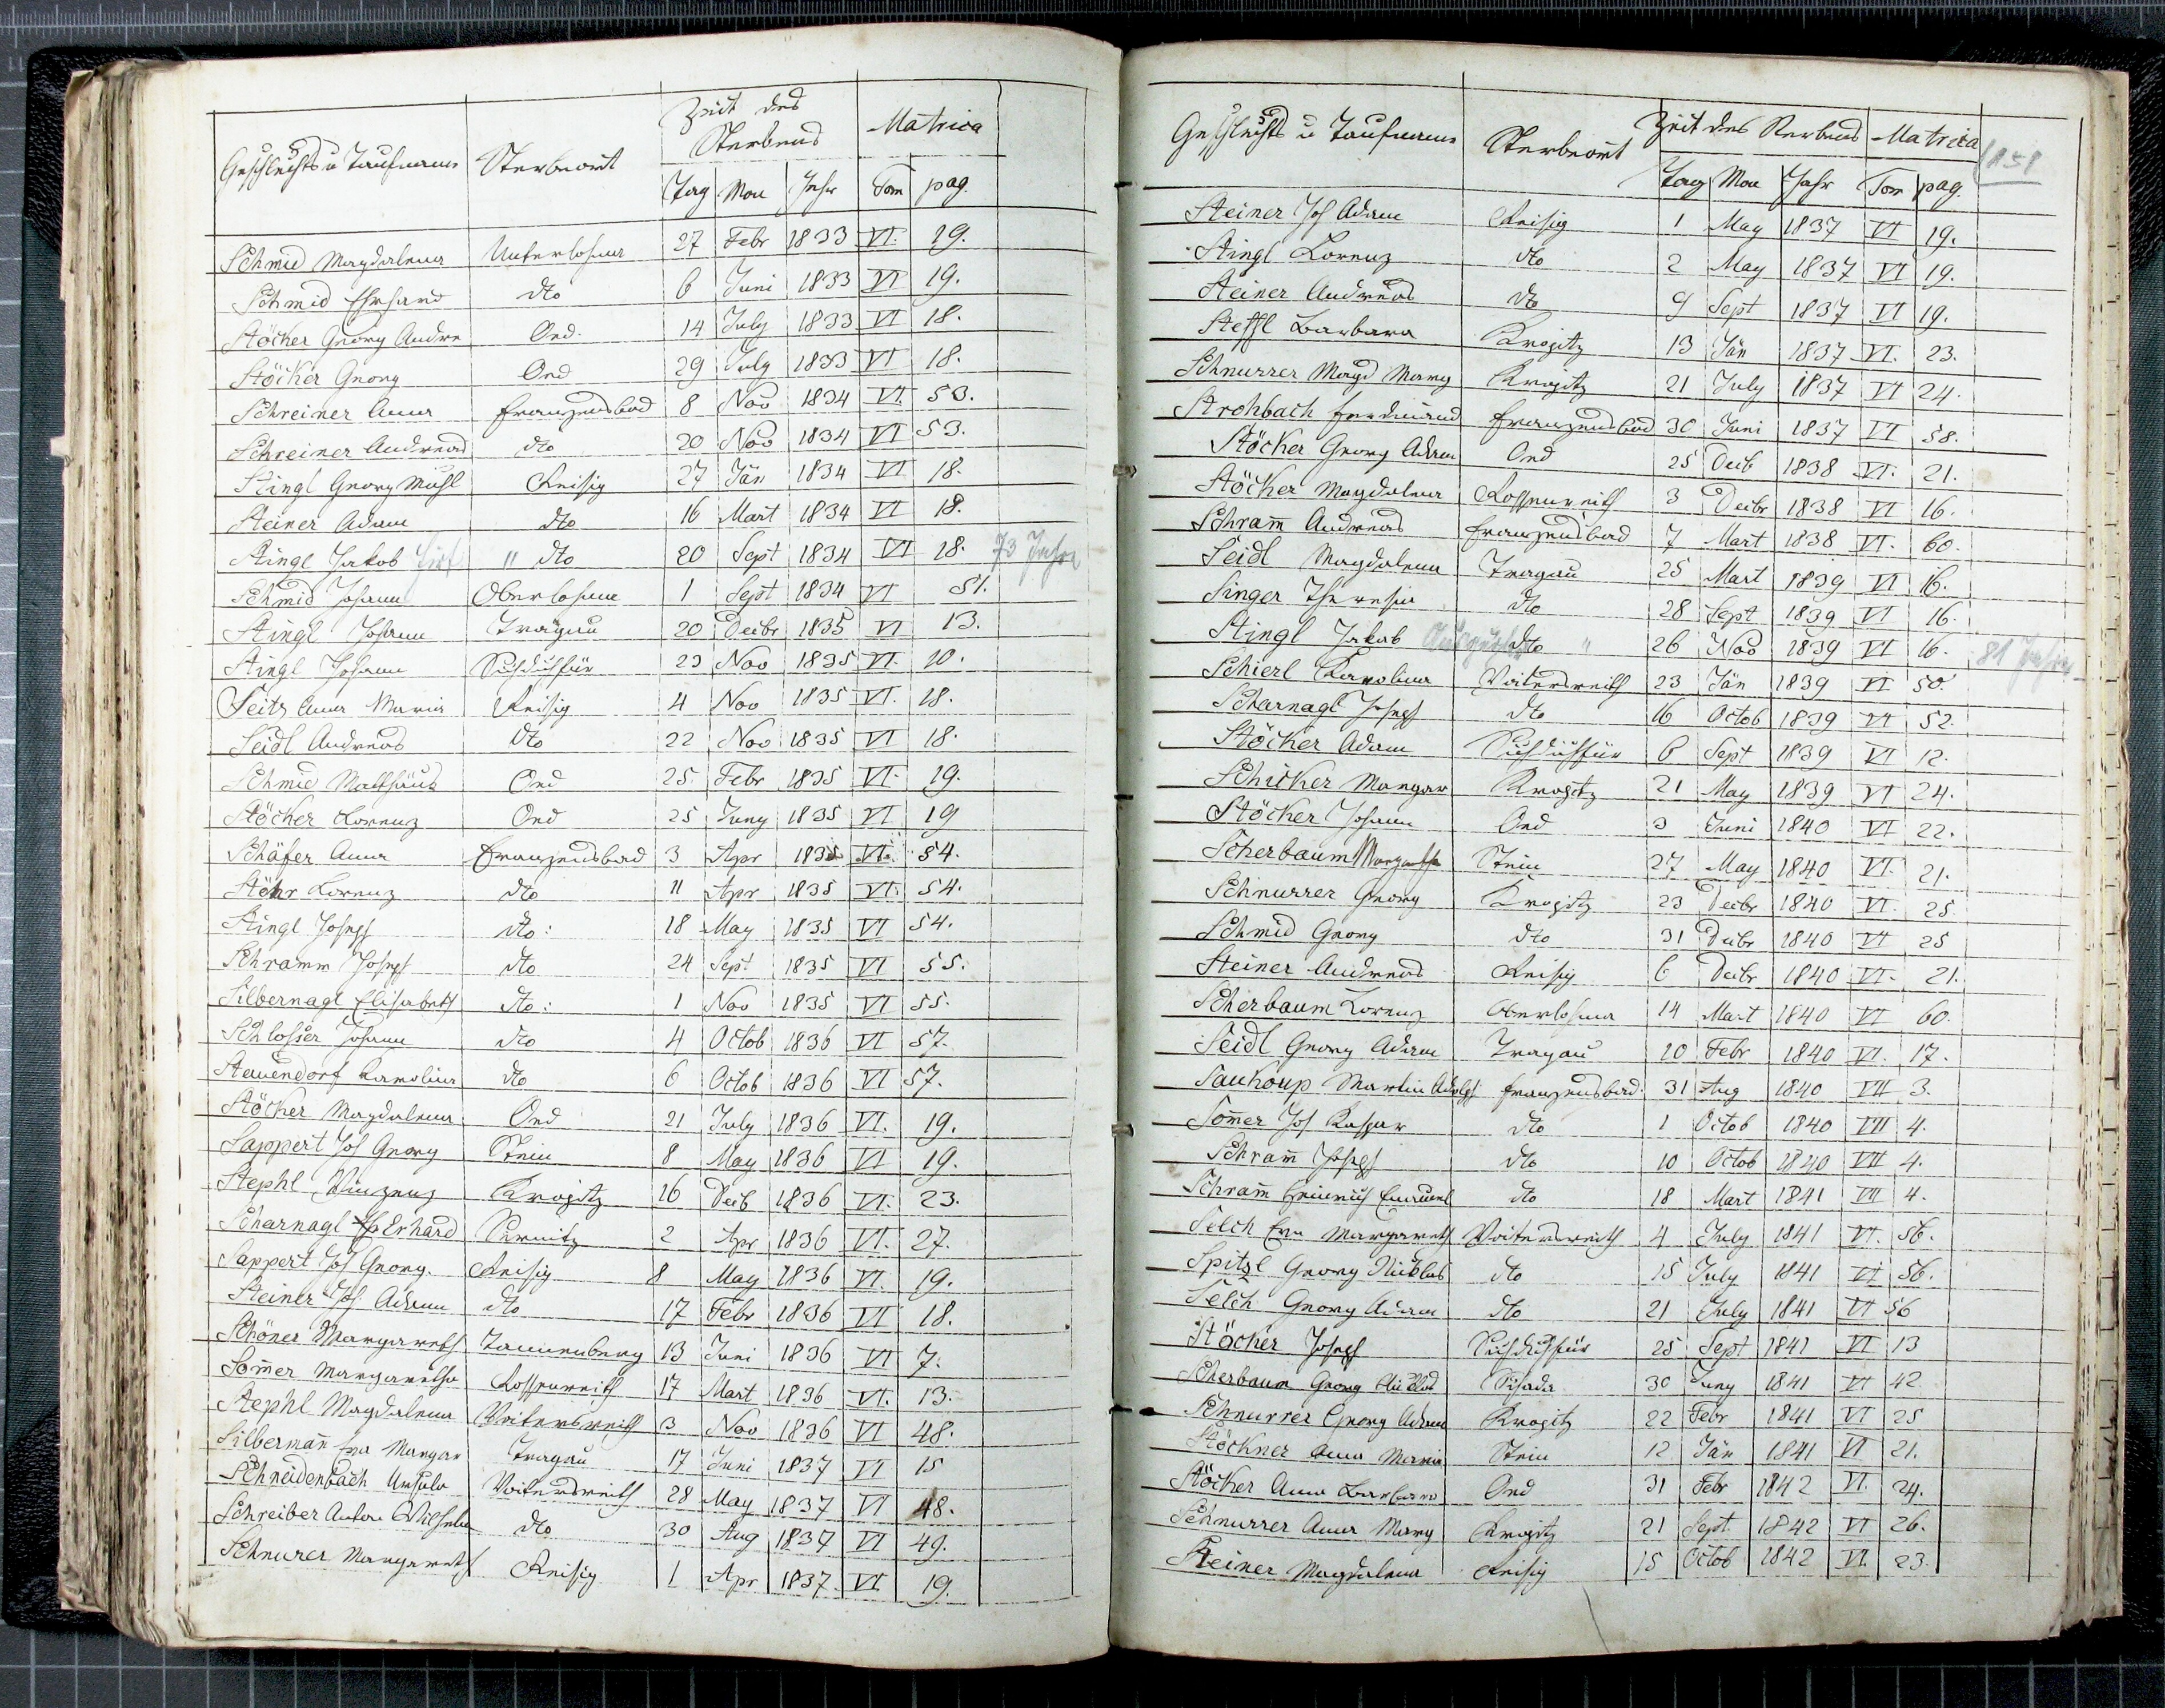 Geschlechts u Taufname Sterbeort Zeit des Sterbens Matrica
Tag Mon Jahr Tom pag.
Schmid Magdalena Unterlohma 27 Febr 1833 VI. 19.
Schmid Erhard dto 6 Juni 1833 VI 19.
Stöcker Georg Andre Ond. 14 July 1833 VI 18.
Stöcker Georg Ond 29 July 1833 VI 18.
Schreiner Anna Franzensbad 8 Nov 1834 VI. 53.
Schreiner Andreas dto 20 Nov 1834 VI 53.
Stingl Georg Michl Reisig 27 Jän 1834 VI 18.
Steiner Adam dto 16 Mart 1834 VI 18.
Stingl Jakob " dto 20 Sept 1834 VI 18. 73 Jahre
Schmid Johann Oberlohma 1 Sept 1834 VI 51.
Stingl Johann Tragau 20 Decbr 1835 VI 13.
Stingl Johann 23 Nov 1835 VI. 10.
Seitz Anna Maria Reisig 4 Nov 1835 VI. 18.
Seidl Andreas dto 22 Nov 1835 VI 18.
Schmid Mathäus Ond 25. Febr 1835 VI. 19.
Stöcker Lorenz Ond 25 Juny 1835 VI 19
Schäfer Anna Franzensbad 3 Apr 1835 VI. 54.
Stöhr Lorenz dto 11 Apr 1835 VI. 54.
Stingl Joseph dto: 18 May 1835 VI 54.
Schramm Joseph dto 24 Sept 1835 VI 55.
Silbernagl Elisabeth dto: 1 Nov 1835 VI 55.
Schlosser Johann dto 4 Octob 1836 VI 57.
Stauendorf Karolina dto 6 Octob 1836 VI 57.
Stöcker Magdalena Ond 21 July 1836 VI. 19.
Sappert Joh Georg Stein 8 May 1836 VI 19.
Stephl Vinzenz Krogitz 16 Decb 1836 VI. 23.
Scharnagl Erhard Sirmitz 2 Apr 1836 VI. 27.
Sappert Joh Georg. Reisig 8 May 1836 VI. 19.
Steiner Joh Adam dto 17 Febr 1836 VI 18.
Schöner Margareth Tannenberg 13 Juni 1836 VI 7.
Som̅er Margaretha Rossenreith 17 Mart 1836 VI. 13.
Stephl Magdalena Voitersreith 3 Nov 1836 VI 48.
Silberman̅ Eva Margar Tragau 17 Juni 1837 VI 15
Schneidenbach Ursula Voitersreith 28 May 1837 VI 48.
Schreiber Anton Wilhelm dto 30 Aug 1837 VI 49.
Schnurer Margareth Reisig 1 Apr 1837. VI 19.
Geschlechts u Taufname Sterbeort Zeit des Sterbens Matrica 151
Tag Mon Jahr Tom pag.
Steiner Joh Adam Reisig 1 May 1837 VI 19.
Stingl Lorenz dto 2 May 1837 VI 19.
Steiner Andreas dto 9 Sept 1837 VI 19.
Steffl Barbara Krogitz 13 Jän 1837 VI. 23.
Schnurrer Magd Marg Krogitz 21 July 1837 VI 24.
Strohbach Ferdinand Franzensbad 30 Juni 1837 VI 58.
Stöcker Georg Adam Ond 25 Decb 1838 VI. 21.
Stöcker Magdalena Rossenreith 3 Decbr 1838 VI 16.
Schram̅ Andreas Franzensbad 7 Mart 1838 VI. 60.
Seidl Magdalena Tragau 25 Mart 1839 VI 16.
Singer Theresia dto 28 Sept 1839 VI 16.
Stingl Jakob dto " 26 Nov 1839 VI 16. 81 Jahre
Schierl Karolina Voitersreith 23 Jän 1839 VI 50.
Scharnagl Joseph dto 16 Octob 1839 VI 52
Stöcker Adam 6 Sept 1839 VI 12.
Schicker Margar Krogitz 21 May 1839 VI 24.
Stöcker Johann Ond 3 Juni 1840 VI 22.
Scherbaum Margaretha Stein 27 May 1840 VI. 21.
Schnurrer Georg Krogitz 23 Decbr 1840 VI. 25.
Schmid Georg dto 31 Decbr 1840 VI 25
Steiner Andreas Reisig 6 Decbr 1840 VI. 21.
Scherbaum Lorenz Oberlohma 14 Mart 1840 VI 60.
Seidl Georg Adam Tragau 20 Febr 1840 VI. 17.
Saukoup Martin Adolph Franzensbad. 31 Aug 1840 VII 3.
Som̅er Joh Kaspar dto 1 Octob 1840 VII 4.
Schram̅ Joseph dto 10 Octob 1840 VII 4.
Schram̅ Heinrich Emanuel dto 18 Mart 1841 VII 4.
Selch Eva Margareth Voitersreith 4 July 1841 VI. 56.
Spitzl Georg Niklas dto 15 July 1841 VI 56.
Selch Georg Adam dto 21 July 1841 VI 56
Stöcker Joseph 25 Sept 1841 VI 13
Scherbaum Georg Niklas Schlada 30 Juny 1841 VI 42
Schnurrer Georg Adam Krogitz 22 Febr 1841 VI 25
Stöckner Anna Maria Stein 12 Jän 1841 VI 21.
Stöcker Anna Barbara Ond 31 Febr 1842 VI. 24.
Schnurrer Anna Marg Krogitz 21 Sept. 1842 VI 26.
Steiner Magdalena Reisig 15 Octob 1842 VI. 23.